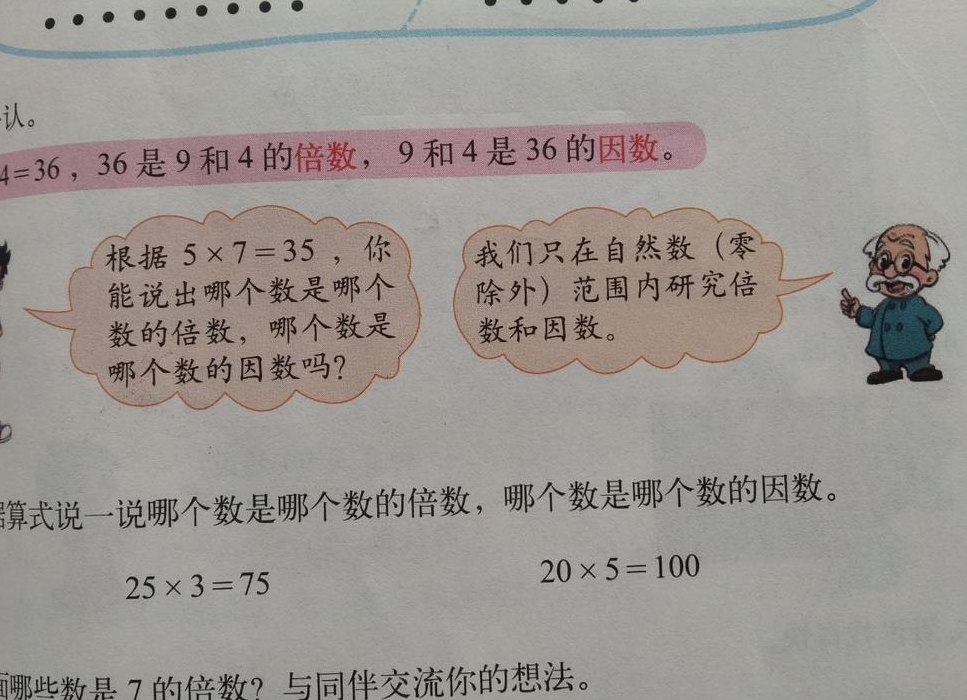 认。
4=36，36是9和4的倍数，9和4是36的因数。
根据 5×7=35，你
能说出哪个数是哪个
数的倍数，哪个数是
哪个数的因数吗？
我们只在自然数（零
除外）范围内研究倍
数和因数。
算式说一说哪个数是哪个数的倍数，哪个数是哪个数的因数。
25×3=75
20×5=100
哪些数是 7 的倍数？与同伴交流你的想法。